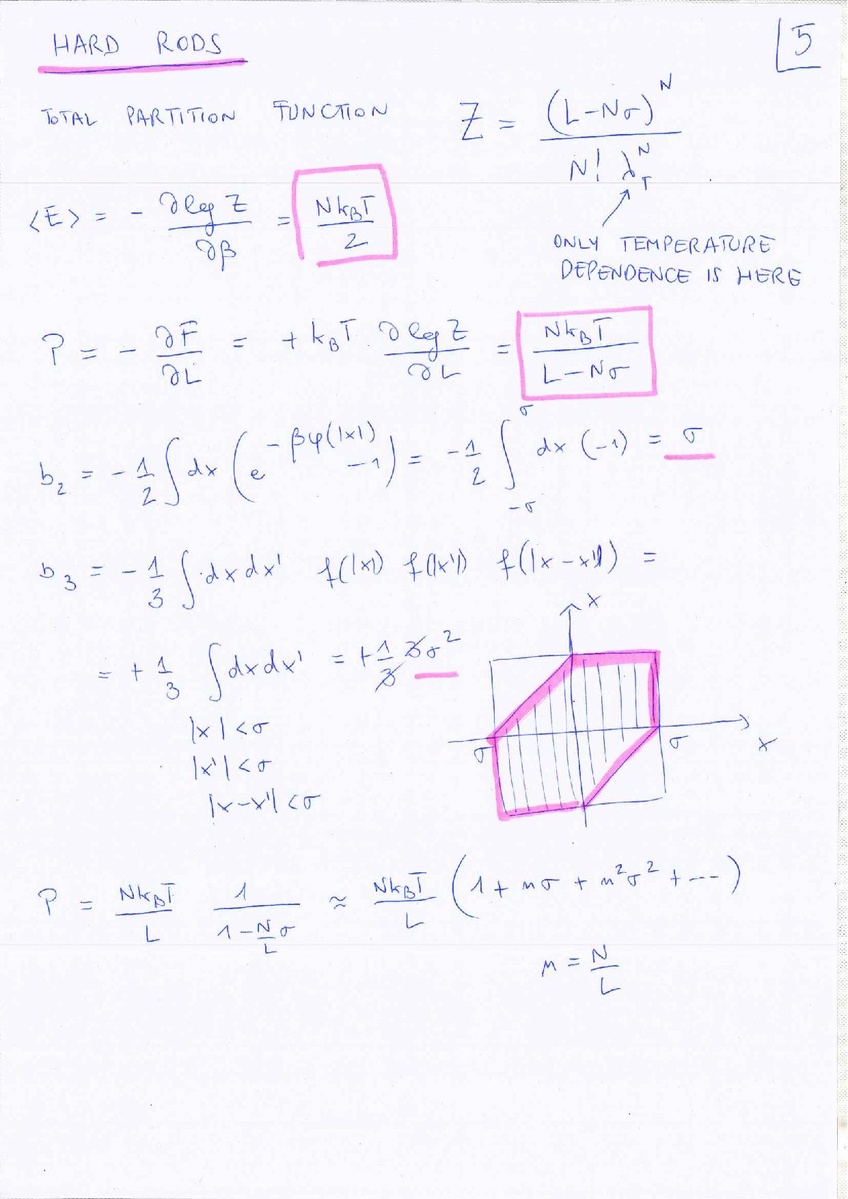 HARD RODS
5
TOTAL PARTITION FUNCTION Z = (L-Nσ)^N / N! λ_T^N
<E> = - ∂log Z / ∂β = Nk_BT / 2
ONLY TEMPERATURE
DEPENDENCE IS HERE
P = - ∂F / ∂L = + k_BT ∂log Z / ∂L = Nk_BT / L-Nσ
b_2 = - 1/2 ∫ dx (e^{-βφ(|x|)} -1) = - 1/2 ∫_{-σ}^{σ} dx (-1) = σ
b_3 = - 1/3 ∫ dx dx' f(|x|) f(|x'|) f(|x-x'|) =
= + 1/3 ∫ dx dx' = + 1/3 3σ^2
|x| < σ
|x'| < σ
|x-x'| < σ
x
σ
σ
x
P = Nk_BT / L 1 / 1 - N/L σ ≈ Nk_BT / L (1 + nσ + n^2σ^2 + ---)
n = N / L